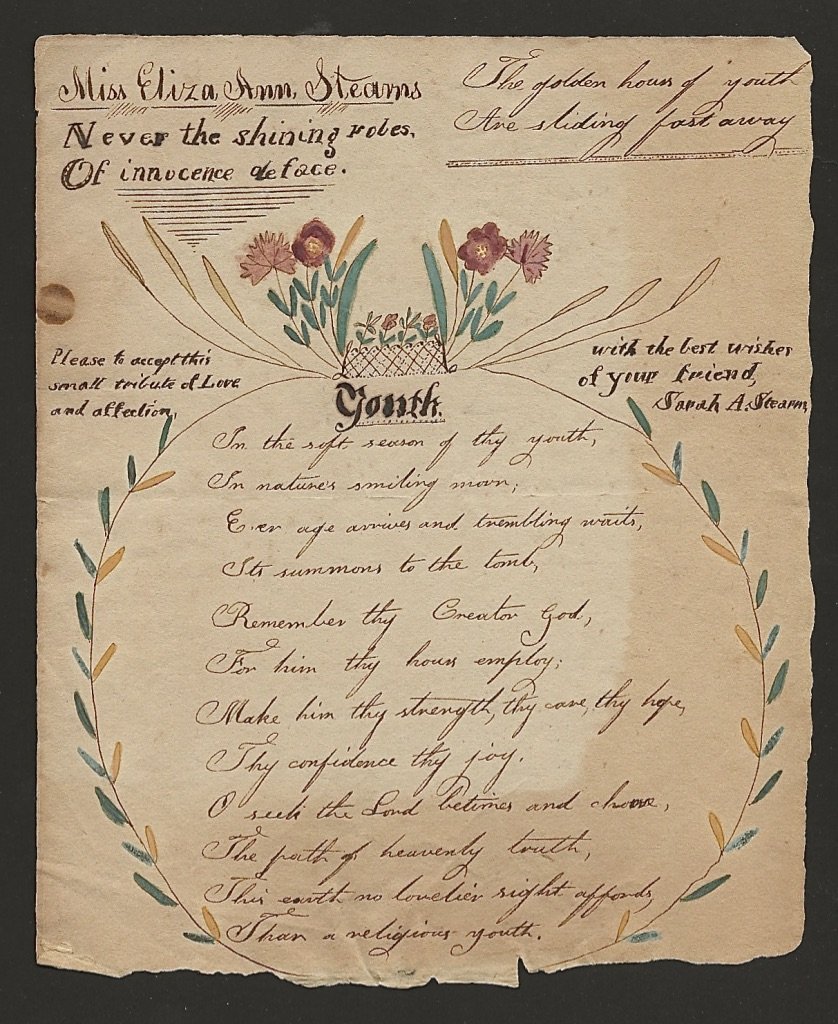 Miss Eliza Ann, Stearns
Never the shining robes,
Of innocence deface.
The golden hours of youth
Are sliding fast away
Please to accept this
small tribute of Love
and affection,
with the best wishes
of your friend,
Sarah A. Stearns,
Youth.
In the soft season of thy youth,
In nature's smiling morn;
E.er age arrives and trembling waits,
Its summons to the tomb,
Remember thy Creator God,
For him thy hours employ;
Make him thy strength, thy care, thy hope,
Thy confidence thy joy.
O seek the Lord betimes and choose,
The path of heavenly truth,
This earth no lovelier sight affords,
Than a religious youth.